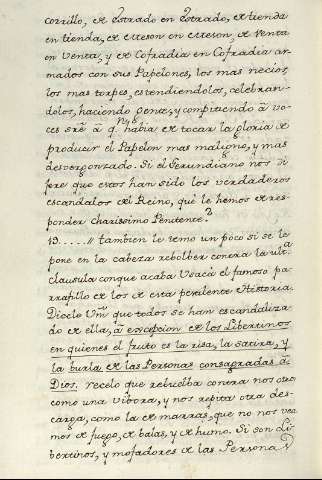 corrillo, de Estrado en Estrado, de tienda
en tienda, de Meson en Meson, de Venta
en Venta, y de Cofradia en Cofradia ar-
mados con sus Papelones, los mas necios,
los mas torpes, estendiendolos, celebran-
dolos, haciendo gente, y compitiendo à vo-
ces sre. à q.n havia de tocar la gloria de
producir el Papelon mas maligno, y mas
desvergonzado. Si el Gerundiano nos di
jere que estos han sido los verdaderos
escandalos del Reino, què le hemos de res-
ponder charissimo Penitente?
19..... // tambien le temo un poco si se le
pone en la cabeza rebolber contra la ult.a
clausula conque acaba el famoso pa-
rrafillo de los de esta pestilente Historia.
Dicelo Vm que todos se han escandaliza-
do de ella, à excepcion de los Libertinos
en quienes el fruto es la risa, la satira, y
la burla de las Personas consagradas à
Dios. recelo que rebuelba contra nos otros
como una vibora, y nos repita otra des-
carga, como la de marras, que no nos vea
mos de fuego, de balas, y de humo. Si son Li
bertinos, y mofadores de las Personas